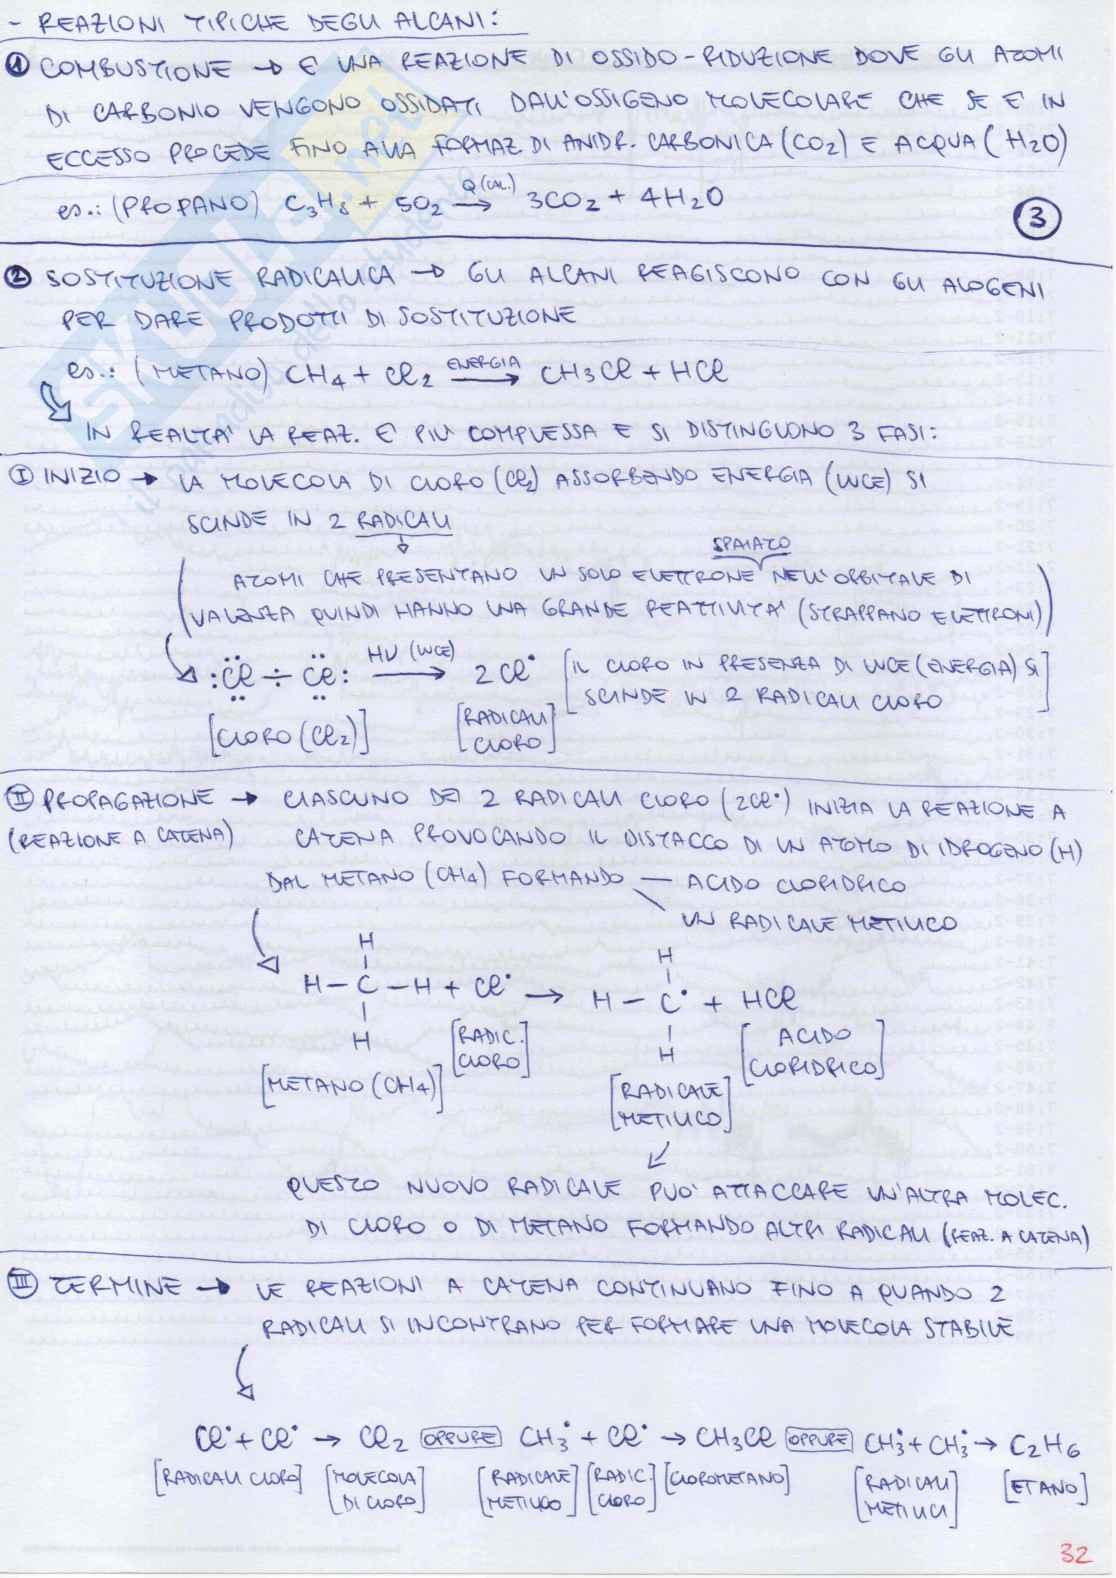 - REAZIONI TIPICHE DEGLI ALCANI:
1 COMBUSTIONE → E' UNA REAZIONE DI OSSIDO-RIDUZIONE DOVE GLI ATOMI
DI CARBONIO VENGONO OSSIDATI DALL'OSSIGENO MOLECOLARE CHE SE E' IN
ECCESSO PROCEDE FINO ALLA FORMAZ. DI ANIDR. CARBONICA (CO2) E ACQUA (H2O)
es.: (PROPANO) C3H8 + 5O2 → 3CO2 + 4H2O
Q (CAL.)
3
2 SOSTITUZIONE RADICALICA → GLI ALCANI REAGISCONO CON GLI ALOGENI
PER DARE PRODOTTI DI SOSTITUZIONE
es.: (METANO) CH4 + Cl2 → CH3Cl + HCl
ENERGIA
IN REALTA' LA REAZ. E' PIU' COMPLESSA E SI DISTINGUONO 3 FASI:
I INIZIO → LA MOLECOLA DI CLORO (Cl2) ASSORBENDO ENERGIA (LUCE) SI
SCINDE IN 2 RADICALI
SPAIATO
(ATOMI CHE PRESENTANO UN SOLO ELETTRONE NELL'ORBITALE DI
VALENZA QUINDI HANNO UNA GRANDE REATTIVITA' (STRAPPANO ELETTRONI))
:Cl ÷ Cl: → 2 Cl• [IL CLORO IN PRESENZA DI LUCE (ENERGIA) SI
HV (LUCE)
SCINDE IN 2 RADICALI CLORO]
[CLORO (Cl2)] [RADICALI CLORO]
II PROPAGAZIONE → CIASCUNO DEI 2 RADICALI CLORO (2Cl•) INIZIA LA REAZIONE A
(REAZIONE A CATENA) CATENA PROVOCANDO IL DISTACCO DI UN ATOMO DI IDROGENO (H)
DAL METANO (CH4) FORMANDO — ACIDO CLORIDRICO
UN RADICALE METILICO
H H
H - C - H + Cl• → H - C• + HCl
H H
[METANO (CH4)] [RADIC. CLORO] [RADICALE METILICO] [ACIDO CLORIDRICO]
QUESTO NUOVO RADICALE PUO' ATTACCARE UN'ALTRA MOLEC.
DI CLORO O DI METANO FORMANDO ALTRI RADICALI (REAZ. A CATENA)
III TERMINE → LE REAZIONI A CATENA CONTINUANO FINO A QUANDO 2
RADICALI SI INCONTRANO PER FORMARE UNA MOLECOLA STABILE
Cl• + Cl• → Cl2 OPPURE CH3• + Cl• → CH3Cl OPPURE CH3• + CH3• → C2H6
[RADICALI CLORO] [MOLECOLA DI CLORO] [RADICALE METILICO] [RADIC. CLORO] [CLOROMETANO] [RADICALI METILICI] [ETANO]
32